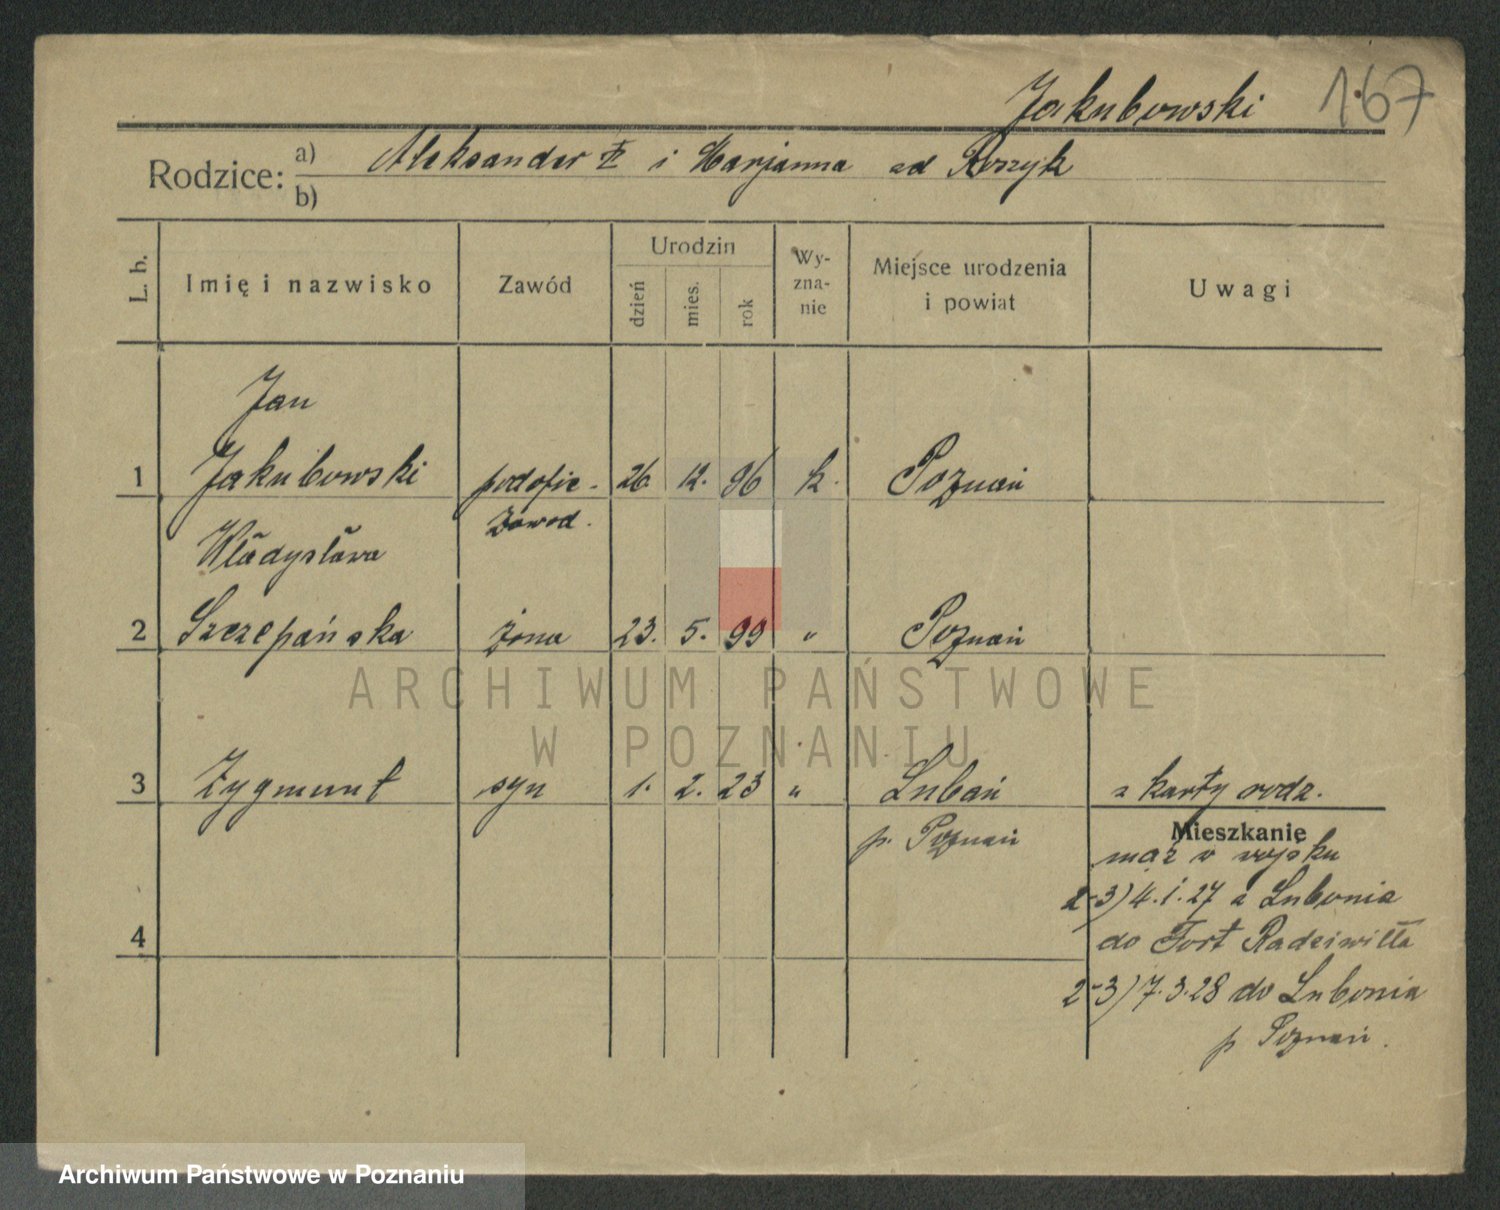 Jakubowski 167
Rodzice: a) Aleksander i Marjanna
b)
L. b. Imię i nazwisko Zawód Urodzin dzień mies. rok Wy-zna-nie Miejsce urodzenia i powiat Uwagi
Jan
1 Jakubowski podofic- 26. 12. 96 k. Poznań
zawod.
Władysława
2 Szczepańska żona 23. 5. 99 " Poznań
3 Zygmunt syn 1. 2. 23 " Lubań z karty rodz.
p. Poznań
Mieszkanie
mąż w wojsku
2-3) 4.1.27 z Lubonia
4
do Fort Radziwiłła
2-3) 7.3.28 do Lubonia
p Poznań.
ARCHIWUM PAŃSTWOWE
W POZNANIU
Archiwum Państwowe w Poznaniu